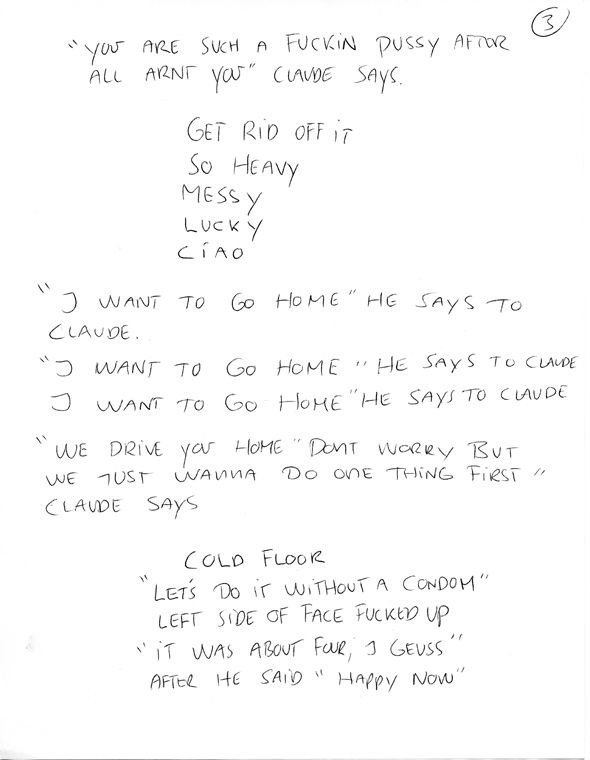 3
"YOU ARE SUCH A FUCKIN PUSSY AFTER
ALL ARNT YOU" CLAUDE SAYS.
GET RID OFF iT
SO HEAVY
MESSY
LUCKY
CIAO
"I WANT TO GO HOME" HE SAYS TO
CLAUDE.
"I WANT TO GO HOME" HE SAYS TO CLAUDE
I WANT TO GO HOME" HE SAYS TO CLAUDE
"WE DRIVE YOU HOME" DONT WORRY BUT
WE JUST WANNA DO ONE THING FIRST"
CLAUDE SAYS
COLD FLOOR
"LET'S DO iT WITHOUT A CONDOM"
LEFT SIDE OF FACE FUCKED UP
"iT WAS ABOUT FOUR, I GEUSS"
AFTER HE SAID "HAPPY NOW"